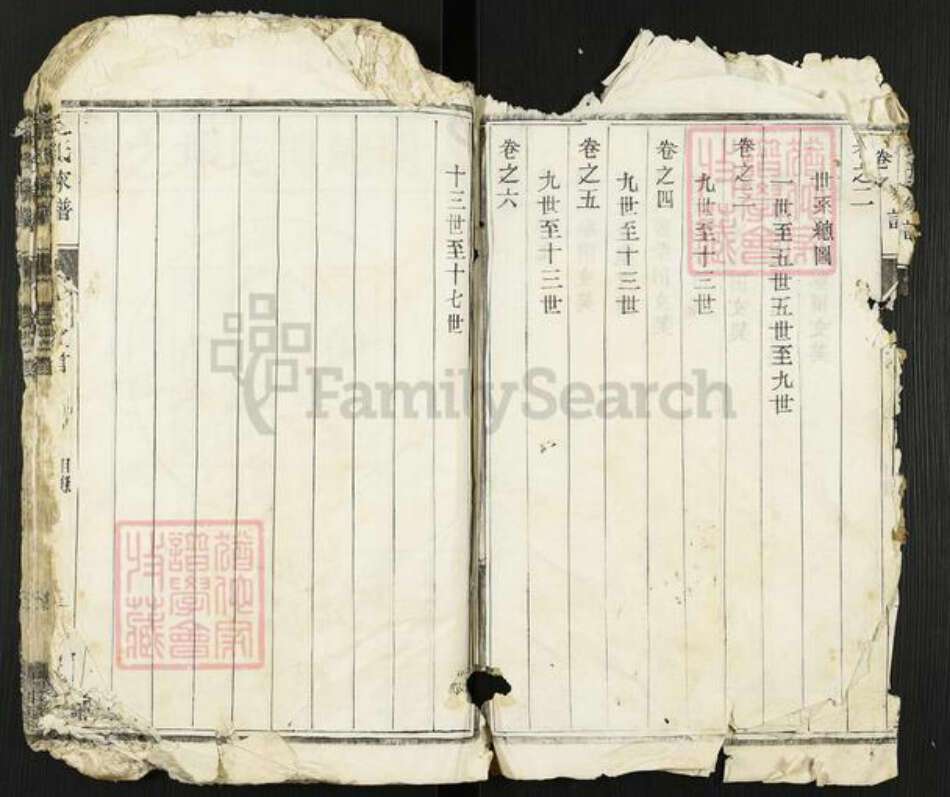 卷之二
世系總圖
一世至五世五世至九世
卷之三
九世至十三世
卷之四
九世至十三世
卷之五
九世至十三世
卷之六
十三世至十七世
氏家譜
目錄
譜學會
收藏
FamilySearch